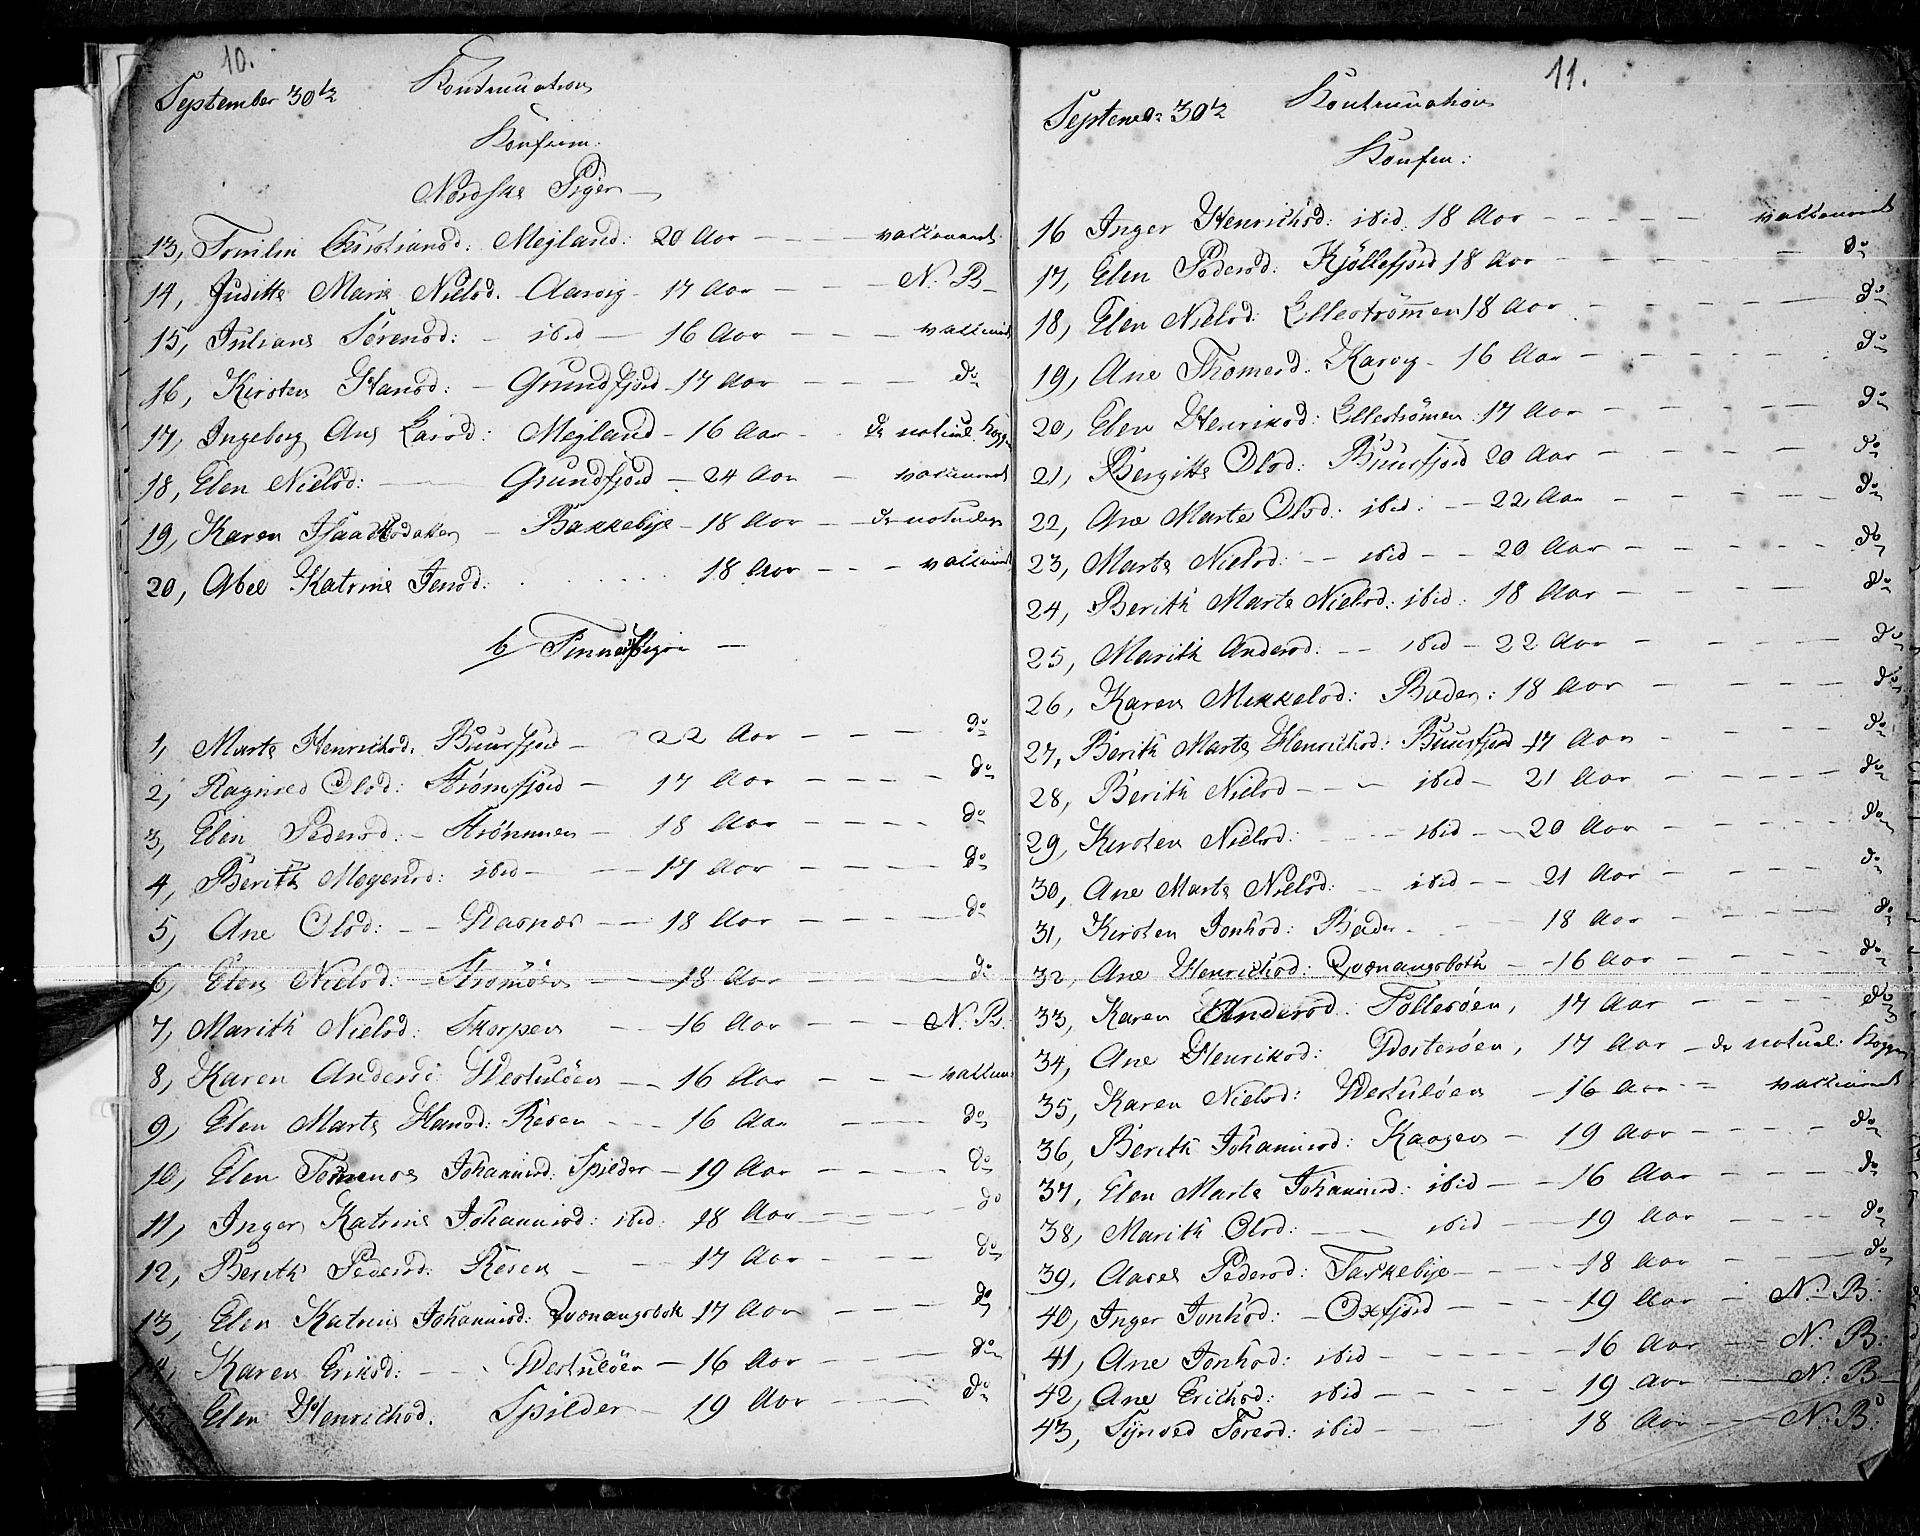 10.
September 30te Kontinuation
Konfirm:
Nordske Piger
13, Christiansd: Mejland: 20 Aar vaccineret
14, Judithe Marie Nielsd. Aarvig 17 Aar N. B
15, Juliane Sørensd: ibid 16 Aar vaccineret
16, Kirsten Hansd: Grundfjord 17 Aar do
17, Ingeborg Ane Larsd: Mejland 16 Aar de naturl. Kopper
18, Elen Nielsd: Grundfjord 24 Aar vaccineret
19, Karen Isaachsdatter Bakkebye 18 Aar de naturlige
20, Abel Katrine Jensd: 18 Aar vaccineret
b/ Finnepiger
1, Marte Henrichsd. Buursfjord 22 Aar do
2, Ragnild Olsd: Strømfjord 17 Aar do
3, Elen Pedersd: Strømmen 18 Aar do
4, Berith Mogensd: ibid 17 Aar do
5, Ane Olsd: 18 Aar do
6, Elen Nielsd: Strømøen 18 Aar do
7, Marith Nielsd: Skorpen 16 Aar N. B.
8, Karen Andersd: 16 Aar vaccin
9, Elen Marte Hansd: Reisen 16 Aar do
10, Elen Johannisd: Spilder 19 Aar do
11, Inger Katrine Johannisd: ibid: 18 Aar do
12, Berith Pedersd: Reisen 17 Aar do
13, Elen Katrine Johannisd: Qvænangsbotn 17 Aar do
14, Karen Eriksd: 16 Aar do
15, Elen Henrichsd. Spilder 19 Aar do
11.
Septembr: 30te Kontinuation
Konfir:
16 Inger Henrichsd: ibid: 18 Aar vaccineret
17, Elen Pedersd: Kjøllefjord 18 Aar do
18, Elen Nielsd: Ellestrømmen 18 Aar do
19, Ane Thomesd: Karvig 16 Aar do
20, Elen Henriksd: Ellestrømen 17 Aar do
21, Bergitte Olsd: Buursfjord 20 Aar do
22, Ane Marte Olsd: ibid: 22 Aar do
23, Marte Nielsd: ibid 20 Aar do
24, Berith Marte Nielsd: ibid: 18 Aar do
25, Marith Andersd: ibid 22 Aar do
26, Karen Mikkelsd: Bader: 18 Aar do
27, Berith Marte Henrichsd: Buursfjord 17 Aar do
28, Berith Nielsd ibid 21 Aar do
29, Kirsten Nielsd: ibid 20 Aar do
30, Ane Marte Nielsd: ibid 21 Aar do
31, Kirsten Jonhsd: Bader 18 Aar do
32, Ane Henrichsd: Qvænangsbotn 16 Aar do
33, Karen Andersd: 17 Aar do
34, Ane Henriksd: 17 Aar de natural: Kopper
35, Karen Nielsd: 16 Aar vaccineret
36, Berith Johannisd: Kaagen 19 Aar do
37, Elen Marte Johannisd: ibid 16 Aar do
38, Marith Olsd: ibid 19 Aar do
39, Aasel Pedersd: Taskebye 18 Aar do
40, Inger Jonhsd: Oxfjord 19 Aar N. B:
41, Ane Jonhsd: ibid 16 Aar N. B:
42, Ane Erichsd: ibid 19 Aar N. B
43, Synved Toresd: ibid 18 Aar N. B: